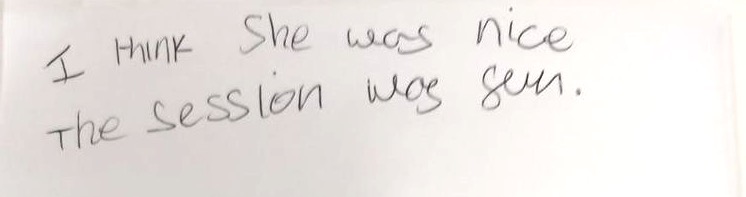 I think She was nice
The session was fun.